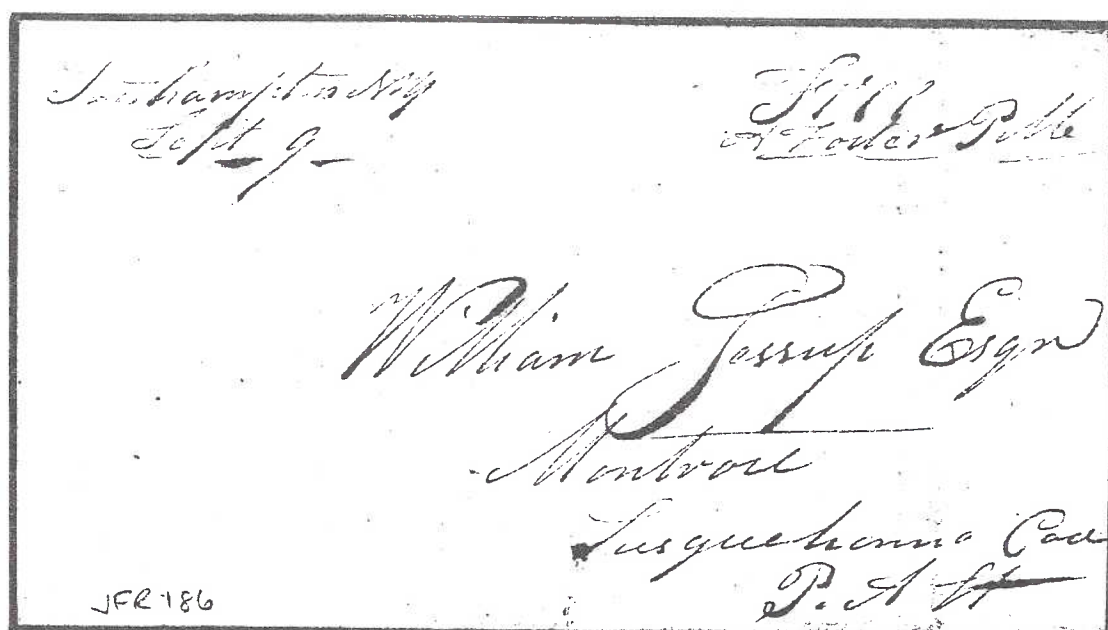 Southampton NY
Sept 9
Free
Foster P.M.
William Jessup Esqr
Montrose
Susquehanna Cou
P. A
JFR 186